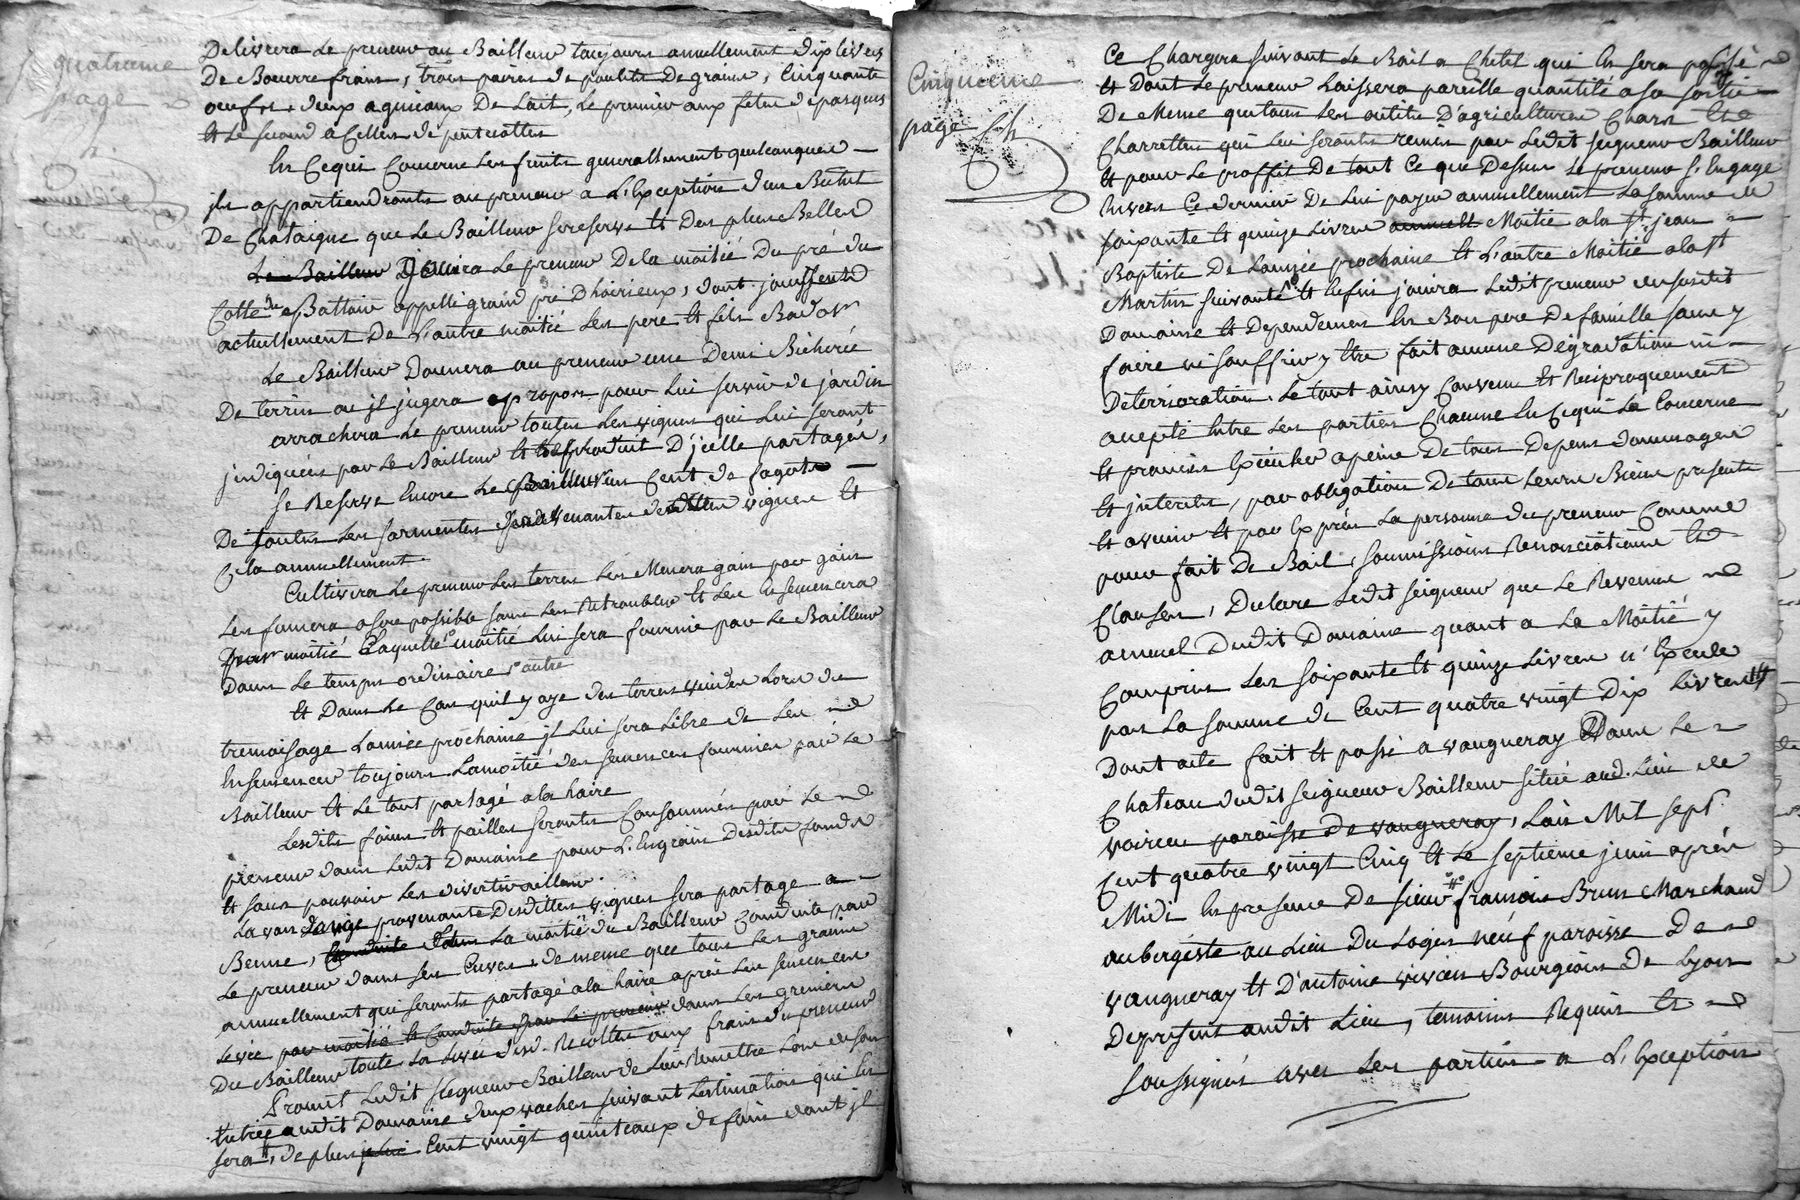 quatrieme
page
Delivrera Le preneur au Bailleur toujours annuellement dix livres
De Beurre frais, trois paires de poulets De grains, Cinquante
oeufs, deux agneaux De Lait, Le premier aux fetes de pasques
Et Le second a Celles de pentecottes
En Cequi Concerne Les fruits generallement quelconques
jls appartiendronts au preneur a L'Exception d'un Bichet
De Chataigne que Le Bailleur se reserve Et Des plus Belles
Le Bailleur Jouira Le preneur De la moitié Du pré du
Cotté de Battoir appellé grand pré Dhoirieux, dont jouissents
actuellement De L'autre moitié Les pere Et fils Bador
Le Bailleur Donnera au preneur une Demi Bicherée
De terrin ou jl jugera apropos pour Lui servir de jardin
arrachera Le preneur toutes Les vignes qui Lui seront
jndiquées par Le Bailleur Et Le produit D'jcelle partagés,
se Reserve Encore Le Bailleur un Cent de fagots
De toutes Les sarmentes provenantes desdittes vignes Et
Cela annuellement.
Cultivera Le preneur Les terres Les Menera gain par gain
Les fumera a son possible sans Les Retroubler Et Les Ensemencera
par moitié Laquelle moitié Lui sera fournie par Le Bailleur
Dans Le temps ordinaire
Et Dans Le Cas quil y aye des terres vuides Lors du
tremaisage Lannée prochaine jl Lui sera Libre de Les
Ensemencer toujours Lamoitié des semences fournies par Le
Bailleur Et Le tout partagé a la haire
Lesdits foins Et pailles seronts Consommés par Le
preneur dans Ledit Domaine pour L'Engrais Desdits fonds
Et sans pouvoir Les divertir ailleur.
La vandange provenante Desdittes vignes sera partagé a
Benne, Conduite La moitié du Bailleur Conduite par
Le preneur dans ses Cuves, de meme que tous Les grains
annuellement qui seronts partagé a la haire après Les semences
Levée par moitié Et Conduite par Le preneur dans Les greniers
Du Bailleur toute La Levée desd. Recoltes aux frais du preneur
Promet Ledit seigneur Bailleur de Lui Remettre Lors de son
Entrée audit Domaine deux vaches suivant Lestimation qui En
sera, de plus Cent vingt quinteaux de foin dont jl
Cinquieme
page
Ce Chargera suivant Le Bail a Chetel qui En sera passé
Et Dont Le preneur Laissera pareille quantité a sa sortie
De Meme quetous Les outils D'agriculture Chars Et
Charrettes qui Lui seronts remis par Ledit seigneur Bailleur
Et pour Le proffit De tout Ce que Dessus Le preneur S'Engage
Envers Ce dernier De Lui payer annuellement La somme de
soixante Et quinze Livres Moitié a la St jean
Baptiste De Lannée prochaine Et L'autre Moitié a la St
Martin suivante Et Enfin jouira Ledit preneur du susdit
Domaine Et Dependences En Bon pere De famille sans y
faire ni souffrir y Etre fait aucune Degradation ni
Deterrioration. Le tout ainsy Convenu Et Reciproquement
accepté Entre Les parties Chacune En Cequi La Concerne
Et promis Executer apeine De tous Depens dommages
Et jnterets, par obligation De tous Leurs Biens presents
Et avenir Et par Exprès La personne du preneur Comme
pour fait De Bail, soumissions Renonciations Et
Clauses, Declare Ledit seigneur que Le Revenu
annuel Dudit Domaine quant a La Moitié y
Compris Les soixante Et quinze Livres n'Excede
pas La somme de Cent quatre vingt Dix Livres
Dont acte fait Et passé a vaugneray Dans Le
Chateau dudit seigneur Bailleur situé aud. Lieu de
voirieu paroisse De vaugneray, Lan Mil sept
Cent quatre vingt Cinq Et Le septieme juin après
Midi En presence De sieur françois Brun Marchand
aubergiste au Lieu Du Logis neuf paroisse De
vaugneray Et D'antoine vivien Bourgeois De Lyon
Depresent audit Lieu, temoins Requis Et
soussignés avec Les parties a L'Exception